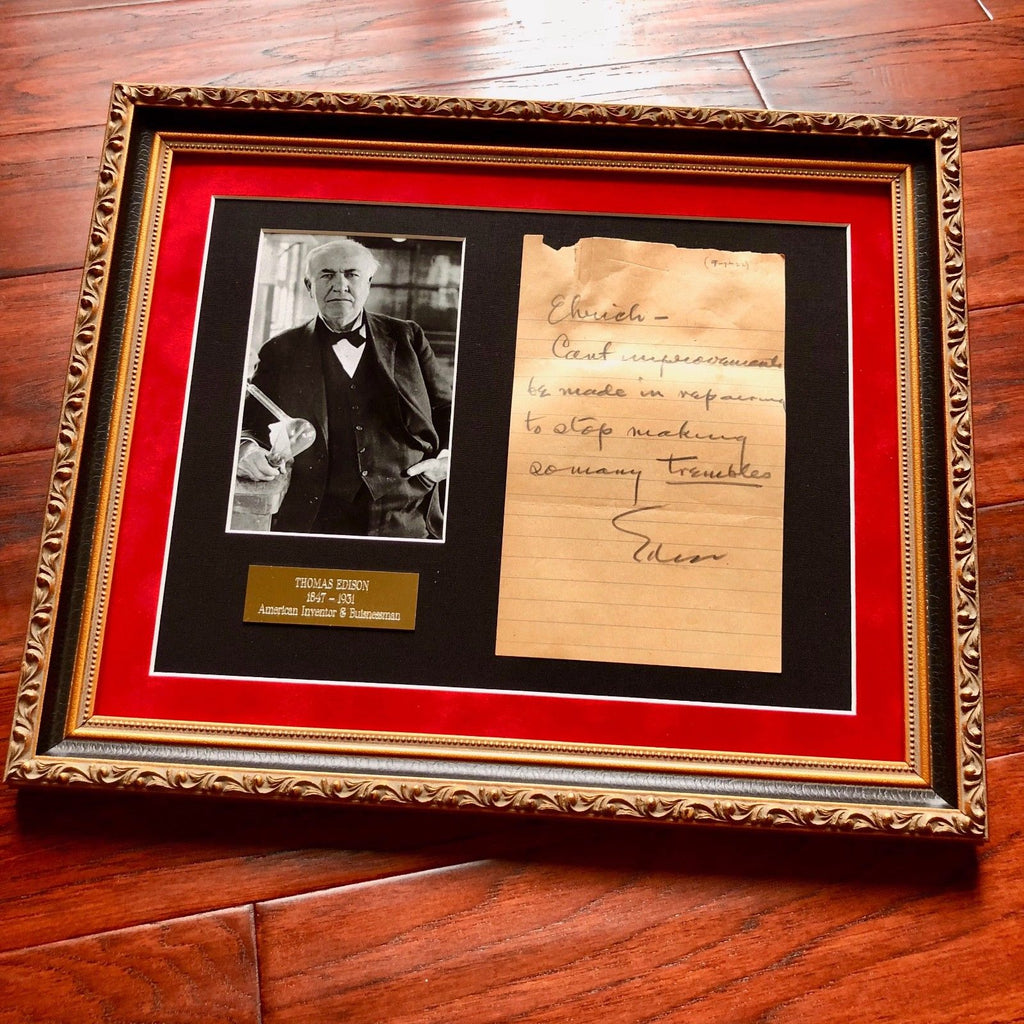 THOMAS EDISON
1847 – 1931
American Inventor & Buisnessman
Ehrich –
Cant improvements
be made in repairing
to stop making
so many Trembles
Edison